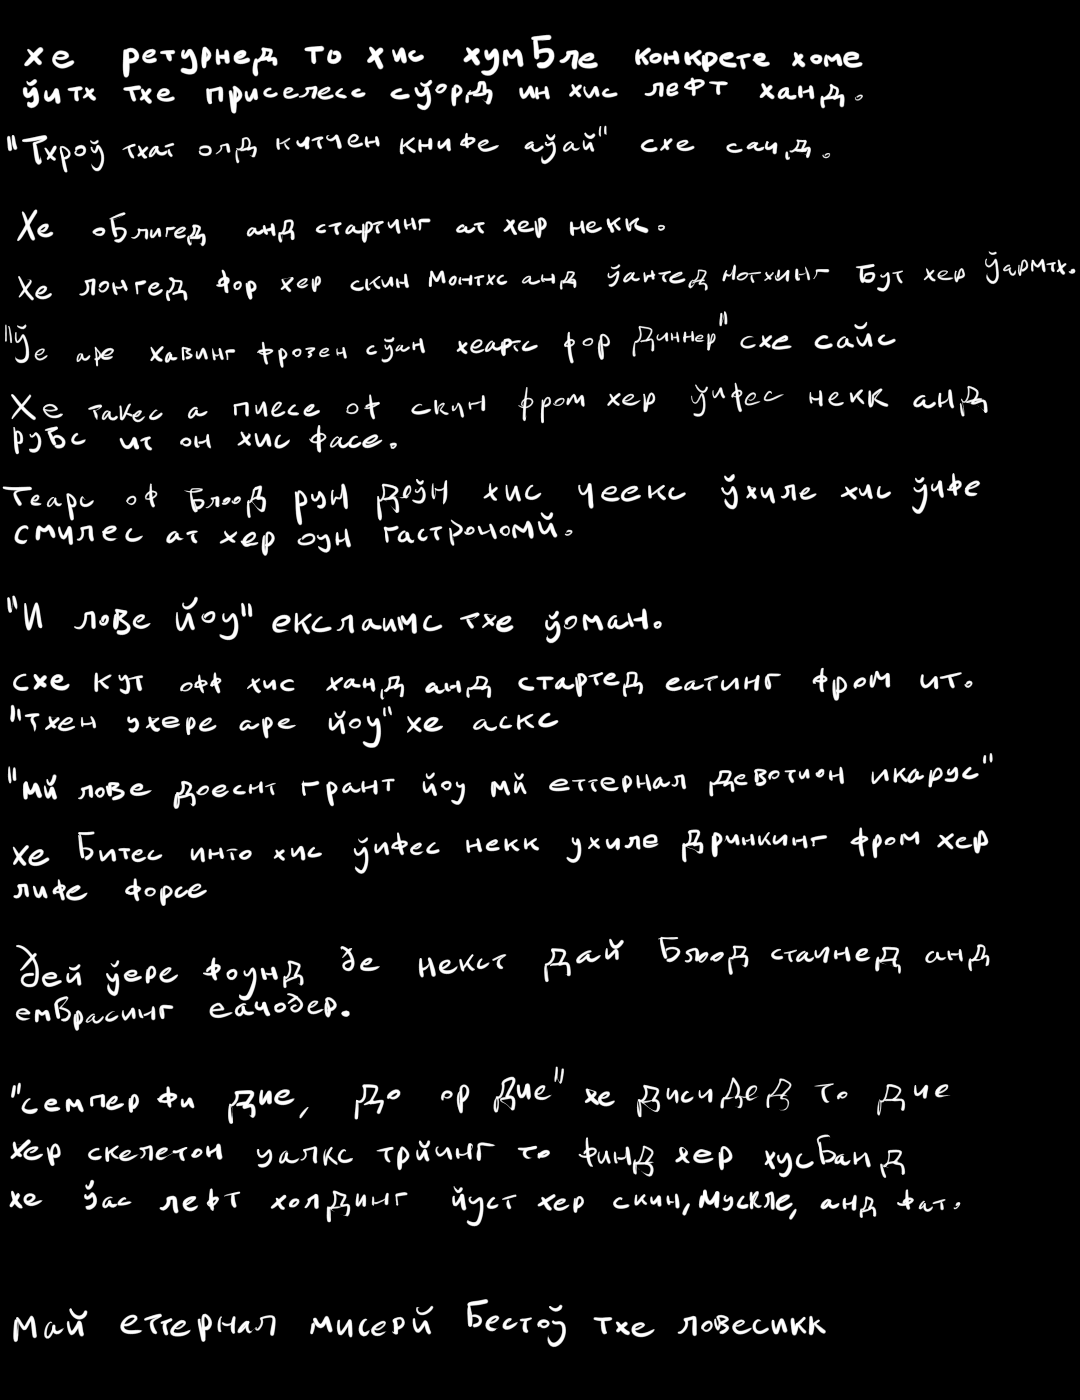 хе ретурнед то хис хумБле конкрете хоме
ўитх тхе приселесс сўорд ин хис лефт ханд.
"Тхроў тхат олд китчен книфе аўай" схе саид.
Хе оБлигед анд стартинг ат хер некк.
Хе лонгед фор хер скин монтхс анд ўантед нотхинг Бут хер ўармтх.
"Ўе аре хавинг фрозен сўан хеартс фор диннер" схе сайс
Хе такес а пиесе оф скин фром хер ўифес некк анд
рубс ит он хис фасе.
Теарс оф Блоод рун доўн хис чеекс ўхиле хис ўифе
смилес ат хер оун гастрономй.
"И лове йоу" екслаимс тхе ўоман.
схе кут офф хис ханд анд стартед еатинг фром ит.
"тхен ухере аре йоу" хе аскс
"мй лове доеснт грант йоу мй еттернал девотион икарус"
хе Битес инто хис ўифес некк ухиле дринкинг фром хер
лифе форсе
дей ўере фоунд де некст дай Блоод стаинед анд
емврасинг еачодер.
"семпер фи дие, до ор дие" хе дисидед то дие
хер скелетон уалкс трйинг то финд хер хусБанд
хе ўас лефт холдинг йуст хер скин, мускле, анд фат.
май еттернал мисерй Бестоў тхе ловесикк